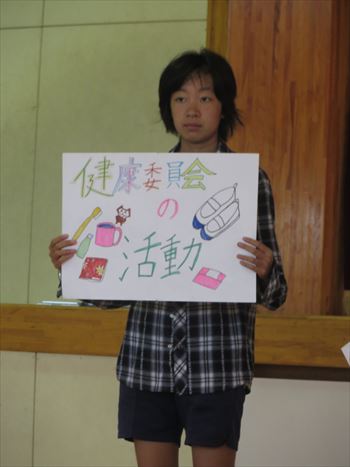 健康委員会
の
活動